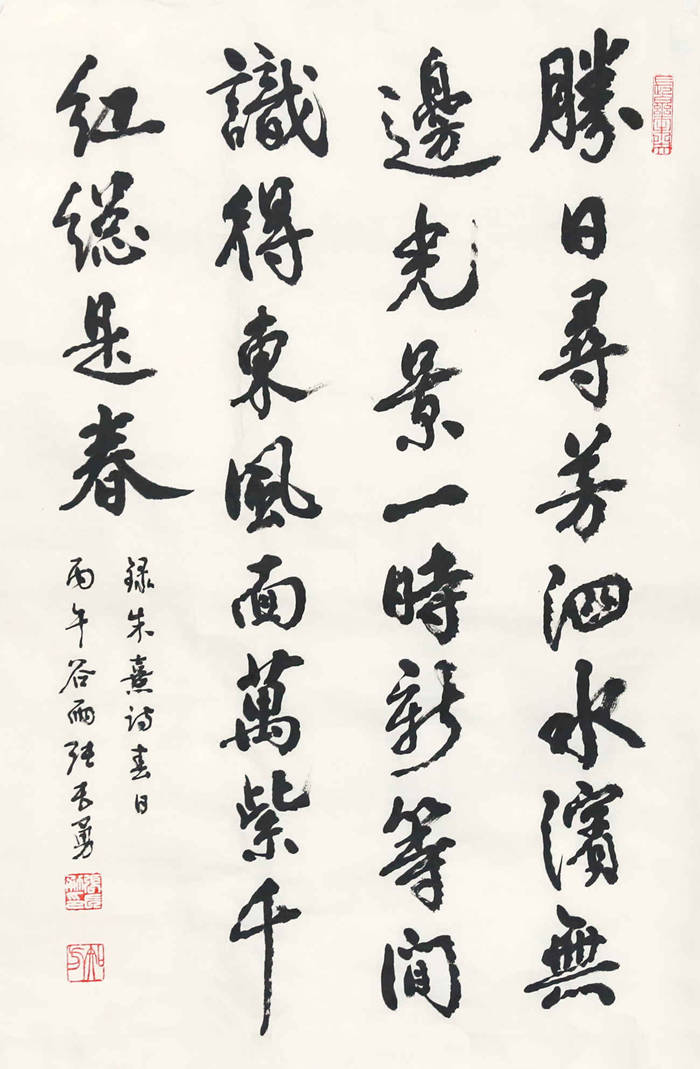 勝日尋芳泗水濱無
邊光景一時新等閒
識得東風面萬紫千
紅總是春
録朱熹詩春日
丙午谷雨張長勇